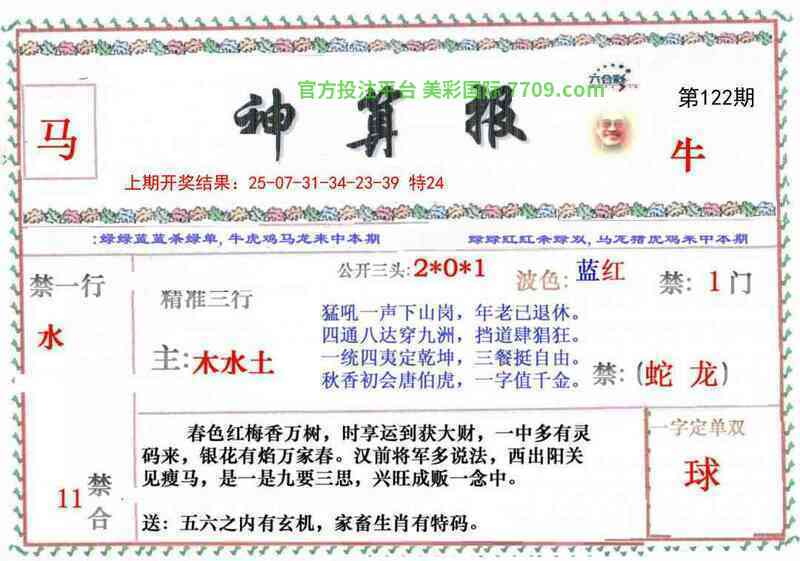 官方投注平台 美彩国际 7709.com
六合彩
第122期
马
神算报
牛
上期开奖结果：25-07-31-34-23-39 特24
:绿绿蓝蓝杀绿单,牛虎鸡马龙来中本期
绿绿红红杀绿双,马龙猪虎鸡来中本期
禁一行
水
精准三行
主:木水土
公开三头:2*0*1
波色:蓝红
禁:1门
猛吼一声下山岗，年老已退休。
四通八达穿九洲，挡道肆猖狂。
一统四夷定乾坤，三餐挺自由。
秋香初会唐伯虎，一字值千金。
禁:(蛇 龙)
11
禁
合
春色红梅香万树，时享运到获大财，一中多有灵
码来，银花有焰万家春。汉前将军多说法，西出阳关
见瘦马，是一是九要三思，兴旺成贩一念中。
送：五六之内有玄机，家畜生肖有特码。
一字定单双
球